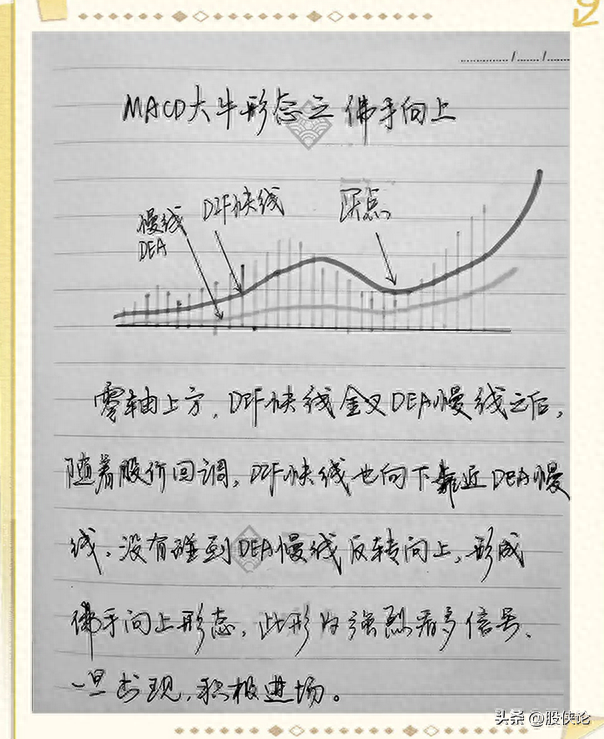 MACD大牛形态之佛手向上
慢线
DEA
DIF快线
买点
零轴上方，DIF快线金叉DEA慢线之后，
随着股价回调，DIF快线也向下靠近DEA慢
线，没有碰到DEA慢线反转向上，形成
佛手向上形态，此形为强烈看多信号、
一旦出现，积极进场。
头条 @股侠论